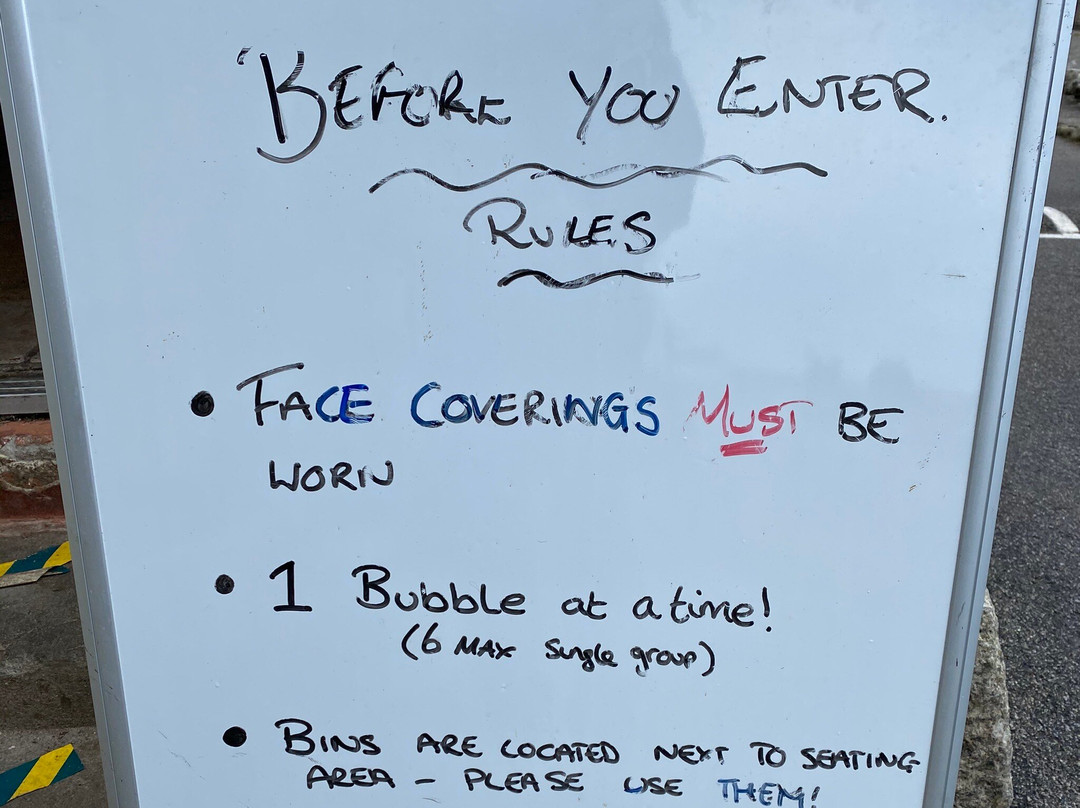 'BEFORE YOU ENTER.
RULES
• FACE COVERINGS MUST BE
WORN
• 1 Bubble at a time!
(6 MAX Single group)
• BINS ARE LOCATED NEXT TO SEATING
AREA - PLEASE USE THEM!